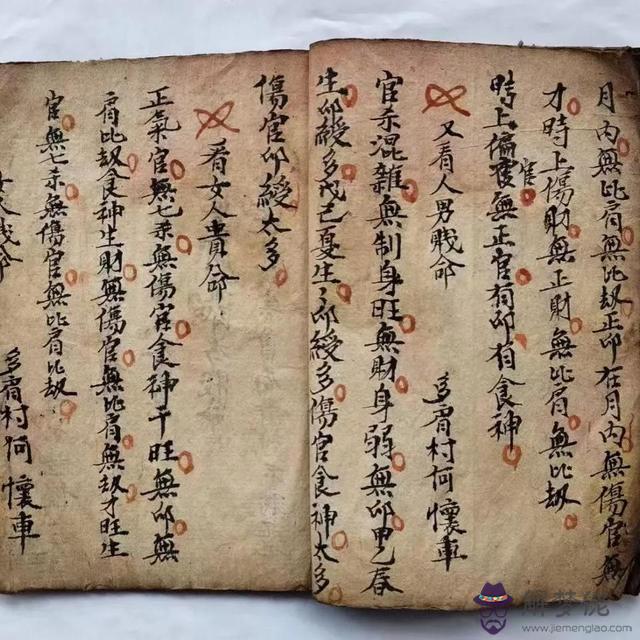 月內無比肩無比劫正印在月內無傷官無
才時上傷財無正財無比肩無比劫
時上偏官無正官有印有食神
又看人男賎命
多眉村何懷車
官杀混雜無制身旺無財身弱無印甲乙春
生印綬多戊己夏生印綬多傷官食神太多
傷官印綬太多
看女人貴命
正氣官無七杀無傷官食神干旺無印無
肩比劫食神生財無傷官無比肩無劫才旺生
官無七杀無傷官無比肩比劫
女人賎命
多眉村何懷車
解梦佬
www.jiemenglao.com